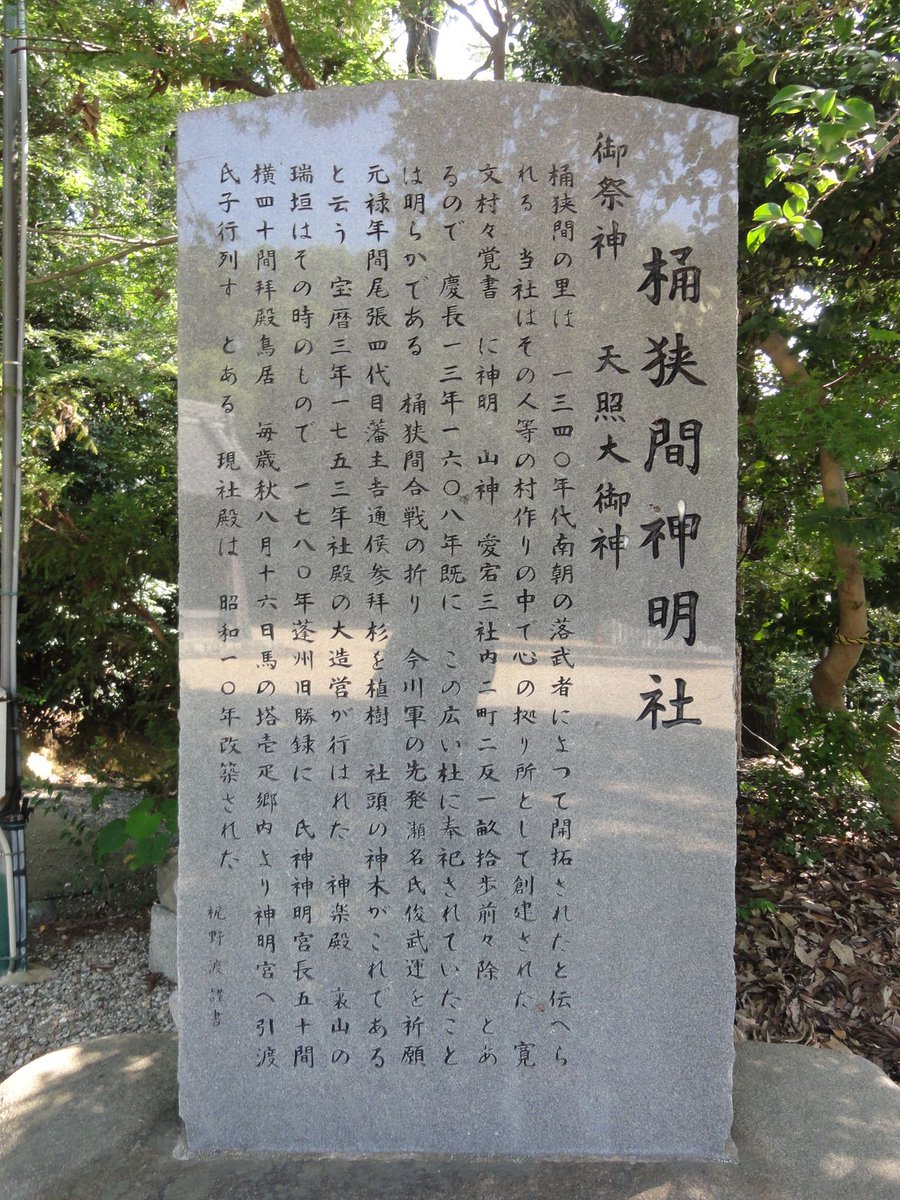 桶狭間神明社
御祭神　天照大御神
桶狭間の里は　一三四〇年代南朝の落武者によつて開拓されたと伝へら
れる　当社はその人等の村作りの中で心の拠り所として創建された　寛
文村々覚書　に神明　山神　愛宕三社内二町二反一畝拾歩前々除　とあ
るので　慶長一三年一六〇八年既に　この広い杜に奉祀されていたこと
は明らかである　桶狭間合戦の折り　今川軍の先発瀬名氏俊武運を祈願
元禄年間尾張四代目藩主吉通侯参拝杉を植樹　社頭の神木がこれである
と云う　宝暦三年一七五三年社殿の大造営が行はれた　神楽殿　裏山の
瑞垣はその時のもので　一七八〇年蓬州旧勝録に　氏神神明宮長五十間
横四十間拝殿鳥居　毎歳秋八月十六日馬の塔壱疋郷内より神明宮へ引渡
氏子行列す　とある　現社殿は　昭和一〇年改築された　梶野渡謹書